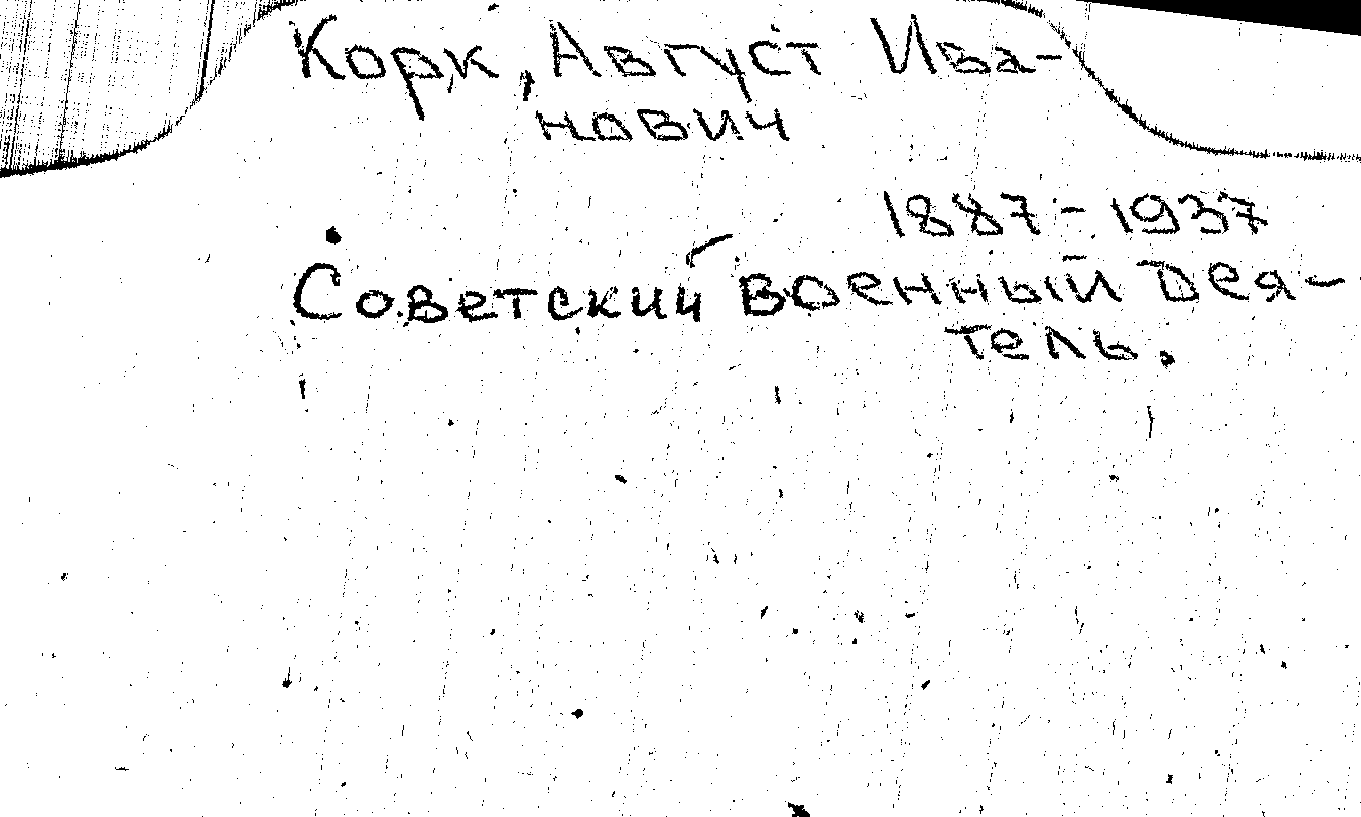 Корк, Август Ива-
нович
1887-1937
Советский военный дея-
тель.